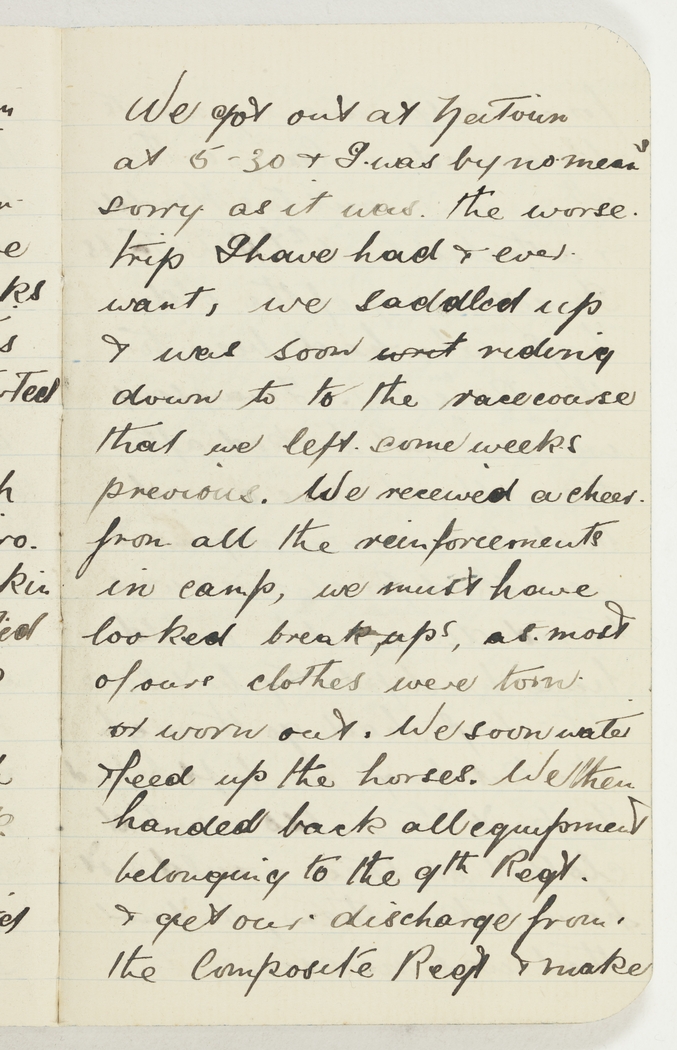 We got out at Zeitoun
at 5-30 & I was by no means
sorry as it was. the worse.
trip I have had & ever
want, we saddled up
& was soon riding
down to to the racecourse
that we left. some weeks
previous. We received a cheer.
from all the reinforcements
in camp, we must have
looked break, ups, as. most
of ours clothes were torn
or worn out. We soon water
& feed up the horses. We then
handed back all equipment
belonging to the 9th Regt.
& get our discharge from.
the Composite Regt & make
ks
s
h
ro.
kin